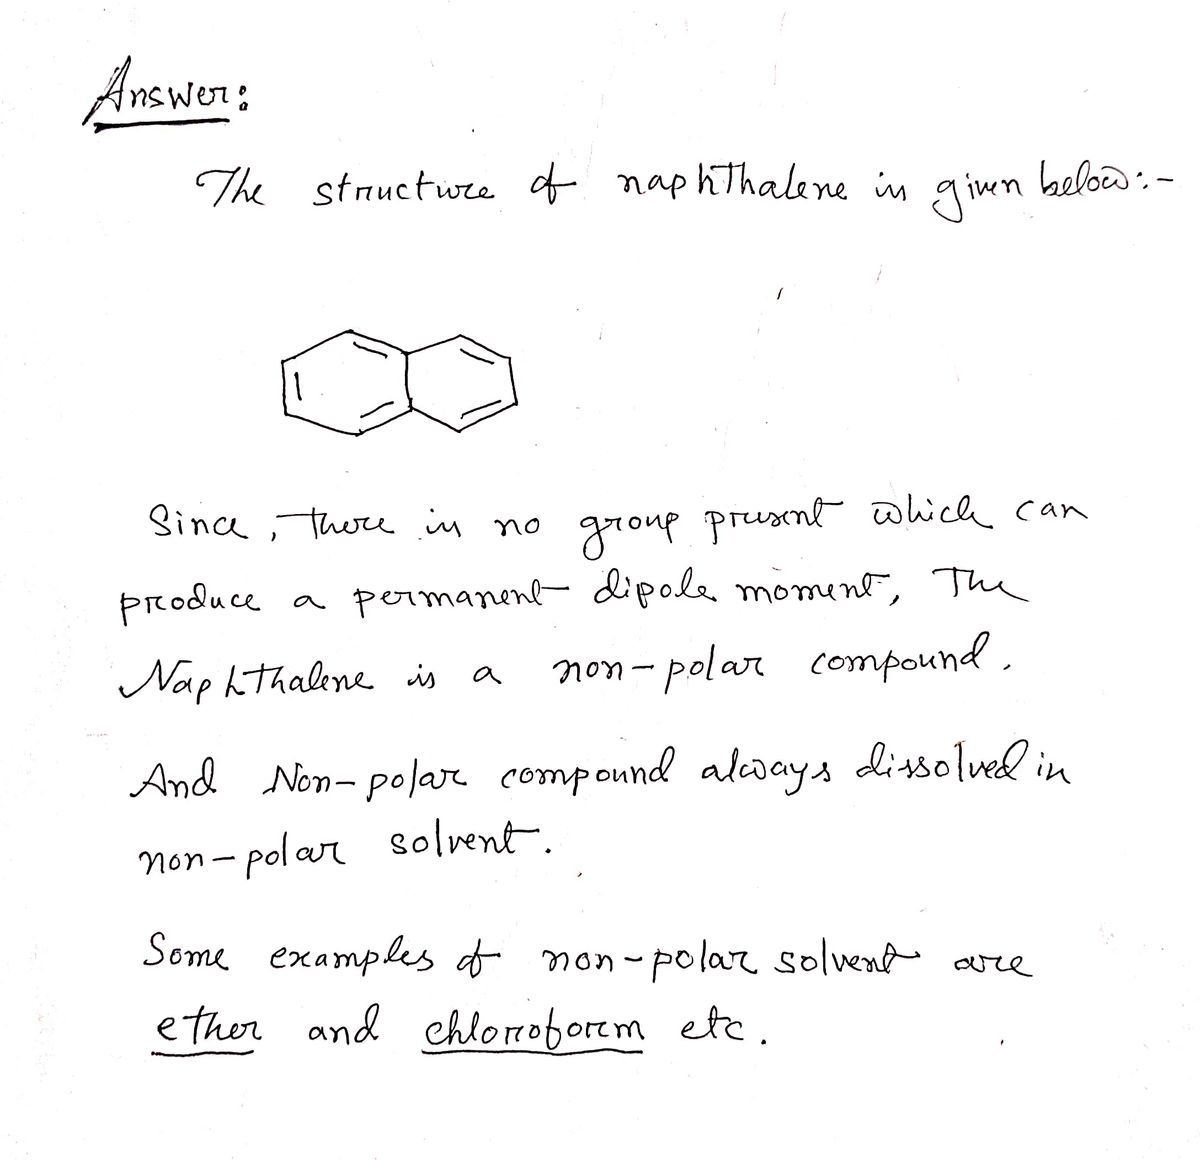 Answer:
The structure of naphthalene is given below:-
Since, there is no group present which can
produce a permanent dipole moment, The
Naphthalene is a non-polar compound.
And Non-polar compound always dissolved in
non-polar solvent.
Some examples of non-polar solvent are
ether and chloroform etc.